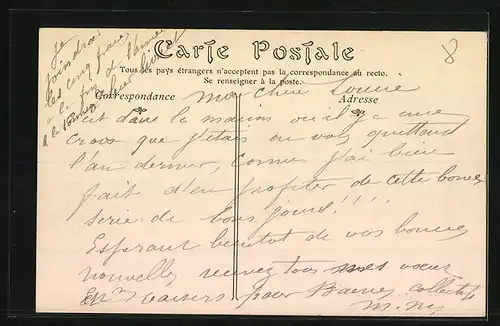 Je
joindrai
les cinq francs
à la fin de l'année
Carte Postale
Tous les pays étrangers n'acceptent pas la correspondance au recto.
Se renseigner à la poste.
Correspondance
Adresse
ma chère
C'est dans la maison où il y a une
croix que j'étais en vous quittant
l'an dernier, comme j'ai bien
fait d'en profiter de cette bonne
serie de bons jours!!!!
Esperant bientot de vos bonnes
nouvelles recevez tous mes vœux
baisers pour